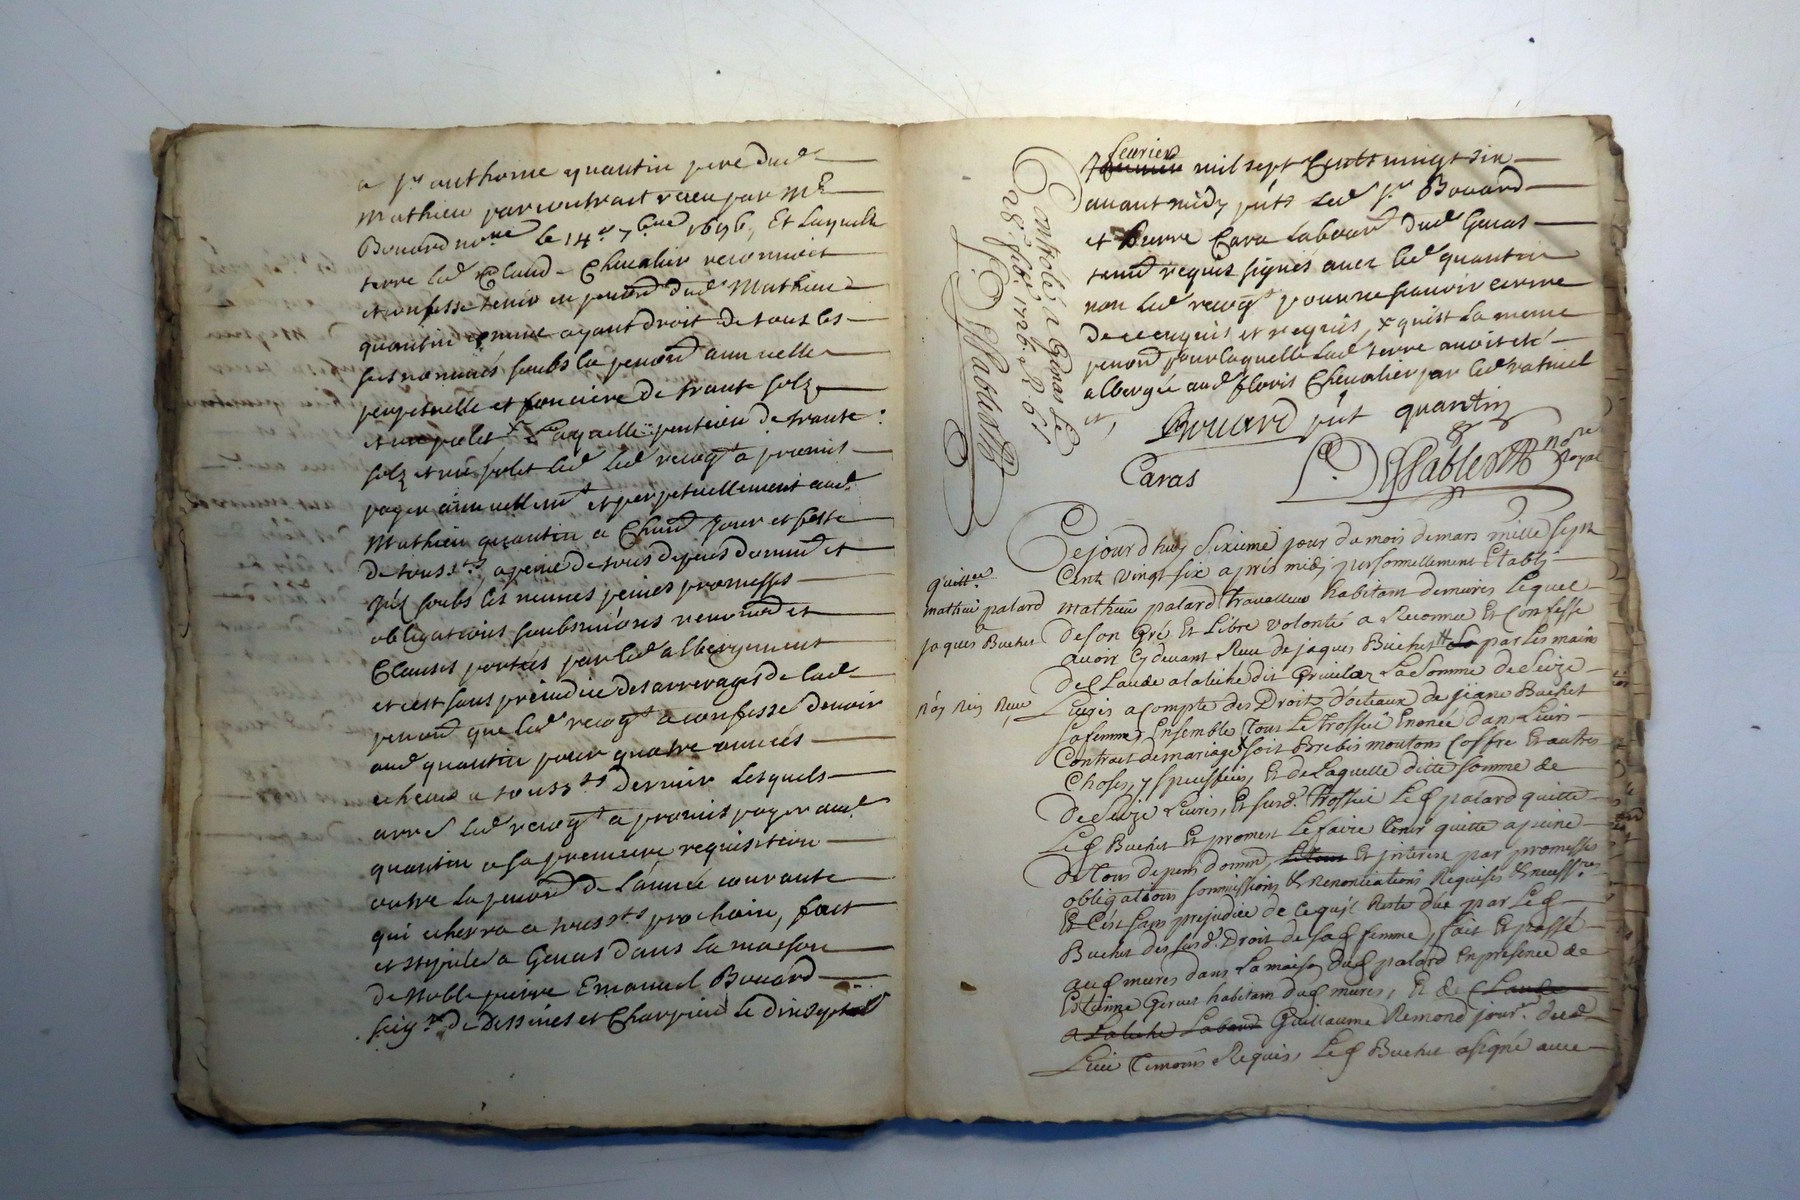 a Sr anthoine quantin pere dud
Mathieu par contract receu par Me
Bouard nore le 14e 7bre 1696, Et laquelle
terre led Claud Chevalier reconnoit
et confesse tenir en pension dud Mathieu
quantin comme ayant droit de tous les
susnommés soubs la pension annuelle
perpetuelle et fonciere de trante solz
et un polet x Laquelle pention de trante
solz et un polet led recogt a promis
payer annuellemt et perpetuellement aud
Mathieu quantin a Chaud jour et feste
de tousts, a peine de tous depens domm et
soubs les mesmes peines promesses
obligations soubmions renond et
Clauses portées par led albergement
et c'est sans prejudice des arrerages de lad
penond que led recogt a confessé devoir
aud quantin pour quatre années
echeues a toussts dernier lesquels
arre led recogt a promis payer aud
quantin a sa premiere requisition
outre la penond de l'année courante
qui echerra a toussts prochain, fait
et stipulé a Genas dans la maison
de Noble pierre Emanuel Bouard
seigr de Dessines et Charpieu le dixsept
fevrier
mil sept Cents vingt six
avant midy pnts led Sr Bouard
et Pierre Cara labour dud Genas
tem requis signés avec led quantin
non led recogt pour ne scavoir ecrire
de ce enquis et requis, x qu'est la meme
penond pour laquelle lad terre avoit eté
albergée aud floris Chevalier par led
Bouard pnt quantin
Caras
nore Royal
Controlé a Genas le
28e feb. 1726. R
Cejourd'huy Sixieme jour du mois de mars mille sept
Cent vingt six apres midy personnellement Etably
quittce
mathieu palard
a
jaques Buchet
mathieu palard travailleur habitam de mures lequel
de son Gré Et Libre volonté a Reconnu Et Confessé
avoir Cy devant Reeu de jaques Buchet par les main
de Claude alaliche dit la somme de Seize
Livres a Compte des Droit de jeane Buchet
sa femme, Ensemble Tous Le Trossel Enoncé dans Leurs
Contrat de mariage soit Brebis moutons Coffre Et autres
Choses y Et de Laquelle ditte somme de
de Seize Livres, Et susd. Trossel Led palard quitte
Led Buchet Et promest Le faire tenir quitte a peine
de Tous depens domm, Et interest par promesses
obligations sommissions & Renontiations Requises &
Et C'est sans prejudice de Ce qu'il Reste due par Led
Buchet des susd. Droit de sad femme, fait Et passé
aud mures dans La maison dud palard En presence de
Estienne Gervet habitam dud mures, Et de Claude
Guillaume Remond jour. dud
Lieu Temoins Requis, Led Buchet a signé avec